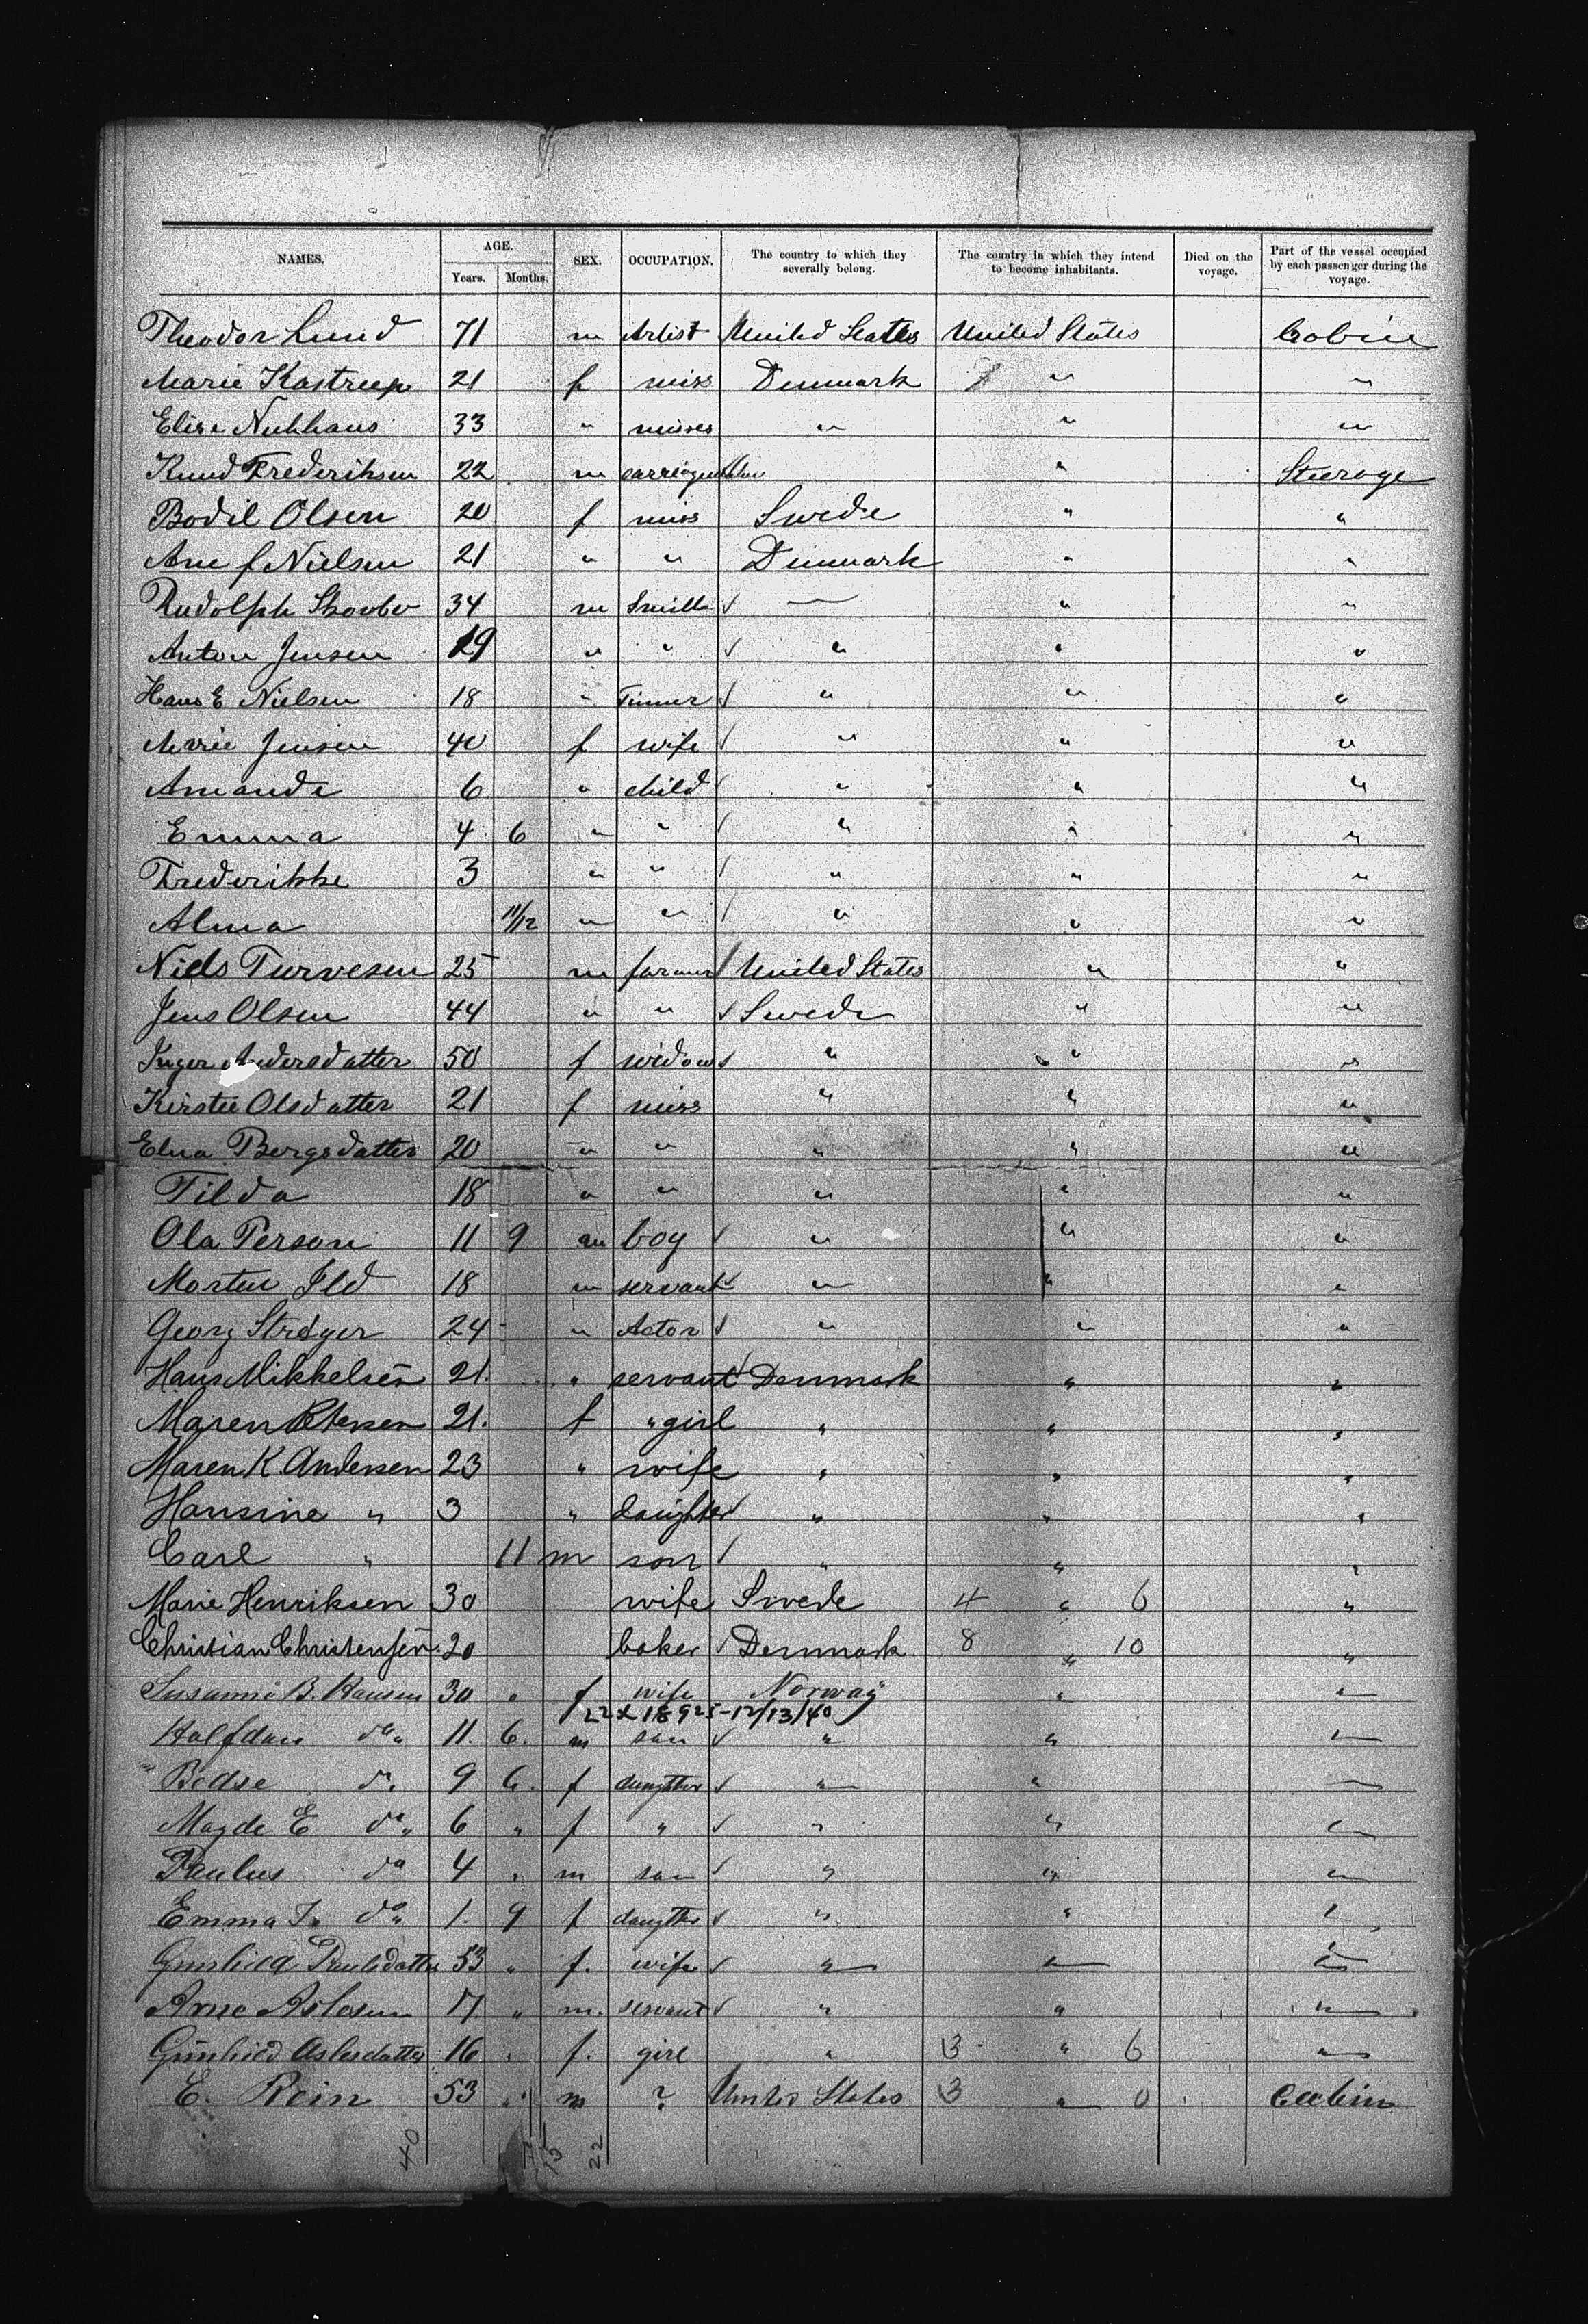 NAMES. AGE. Years. Months. SEX. OCCUPATION. The country to which they severally belong. The country in which they intend to become inhabitants. Died on the voyage. Part of the vessel occupied by each passenger during the voyage.
Theodor Lund 71 m Artist United States United States Cabin
Marie Kastrup 21 f miss Denmark " "
Elise Nuhhaus 33 " misses " " "
Knud Frederiksen 22 m " Steerage
Bodil Olsen 20 f miss Swede " "
Ane f Nielsen 21 " " Denmark " "
Rudolph 34 m Smith √ — " "
Anton Jensen 19 " " √ " " "
Hans E Nielsen 18 " Tinner √ " " "
Marie Jensen 40 f wife √ " " "
Amanda 6 " child √ " " "
Emma 4 6 " " √ " " "
Frederikke 3 " " √ " " "
Alma 11/12 " " √ " " "
Niels Turvesen 25 m farmer √ United States " "
Jens Olsen 44 " " √ Swede " "
Inger Andersdatter 50 f widow √ " " "
Kirstie Olsdatter 21 f miss " " "
Elna Bergsdatter 20 " " " " "
Tilda 18 " " " " "
Ola Person 11 9 m boy √ " " "
Morten Ild 18 m servant √ " " "
Georg Strøyer 24 " Actor √ " " "
Hans Mikkelsen 21. " servant √ Denmark " "
Maren Petersen 21. f " girl " " "
Maren K. Andersen 23 " wife " " "
Hansine " 3 " daughter √ " " "
Carl " 11 m son √ " " "
Marie Henriksen 30 wife Swede 4 " 6 "
Christian Christensen 20 baker √ Denmark 8 " 10 "
Susanne B. Hansen 30 " f wife Norway " "
22 X 18925-12/13/40
Halfdan do " 11. 6. m son √ " " "
Bodse do " 9 6. f daugther √ " " "
Magda E do " 6 " f " √ " " "
Paulus do 4 " m son √ " " "
Emma do " 1. 9 f daugther √ " " "
Gunhild Paulsdatter 53 " f. wife √ " " "
Arne Aslesen 17 " m. servant √ " " "
Gunhild Aslesdatter 16 " f. girl " 3 " 6 "
E. Rein 53 " m ? United States 3 " 0 Cabin
40 22